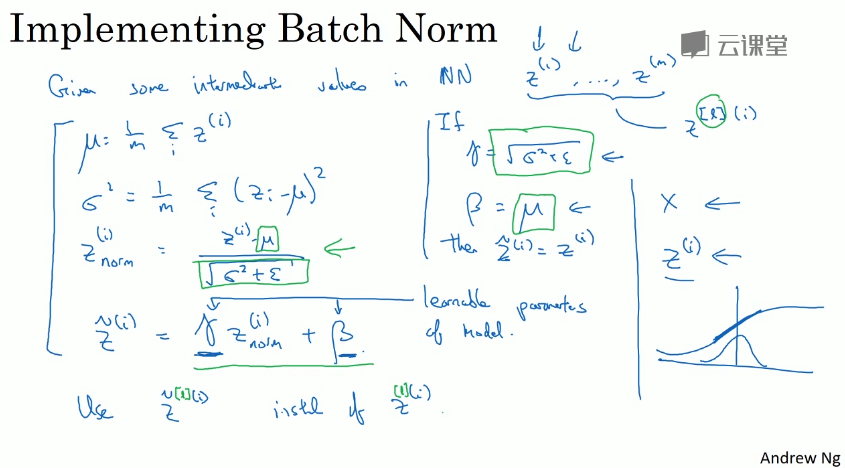 Implementing Batch Norm
云课堂
Given some intermediate values in NN z^(1), ..., z^(m)
z^[l](i)
μ = 1/m Σ_i z^(i)
σ² = 1/m Σ_i (z_i - μ)²
z^(i)_norm = (z^(i) - μ) / √(σ² + ε)
z̃^(i) = γ z^(i)_norm + β
learnable parameters
of model.
If
γ = √(σ² + ε) ←
β = μ ←
then z̃^(i) = z^(i)
X ←
z^(i) ←
Use z̃^[l](i) instead of z^[l](i).
Andrew Ng